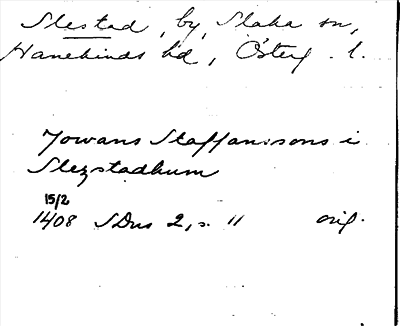 Slestad, by, Slaka sn,
Hanekinds hd, Österg. l.
Jowans Staffanssons i
Slezstadhum
15/2
1408 SDns 2, s. 11 orig.